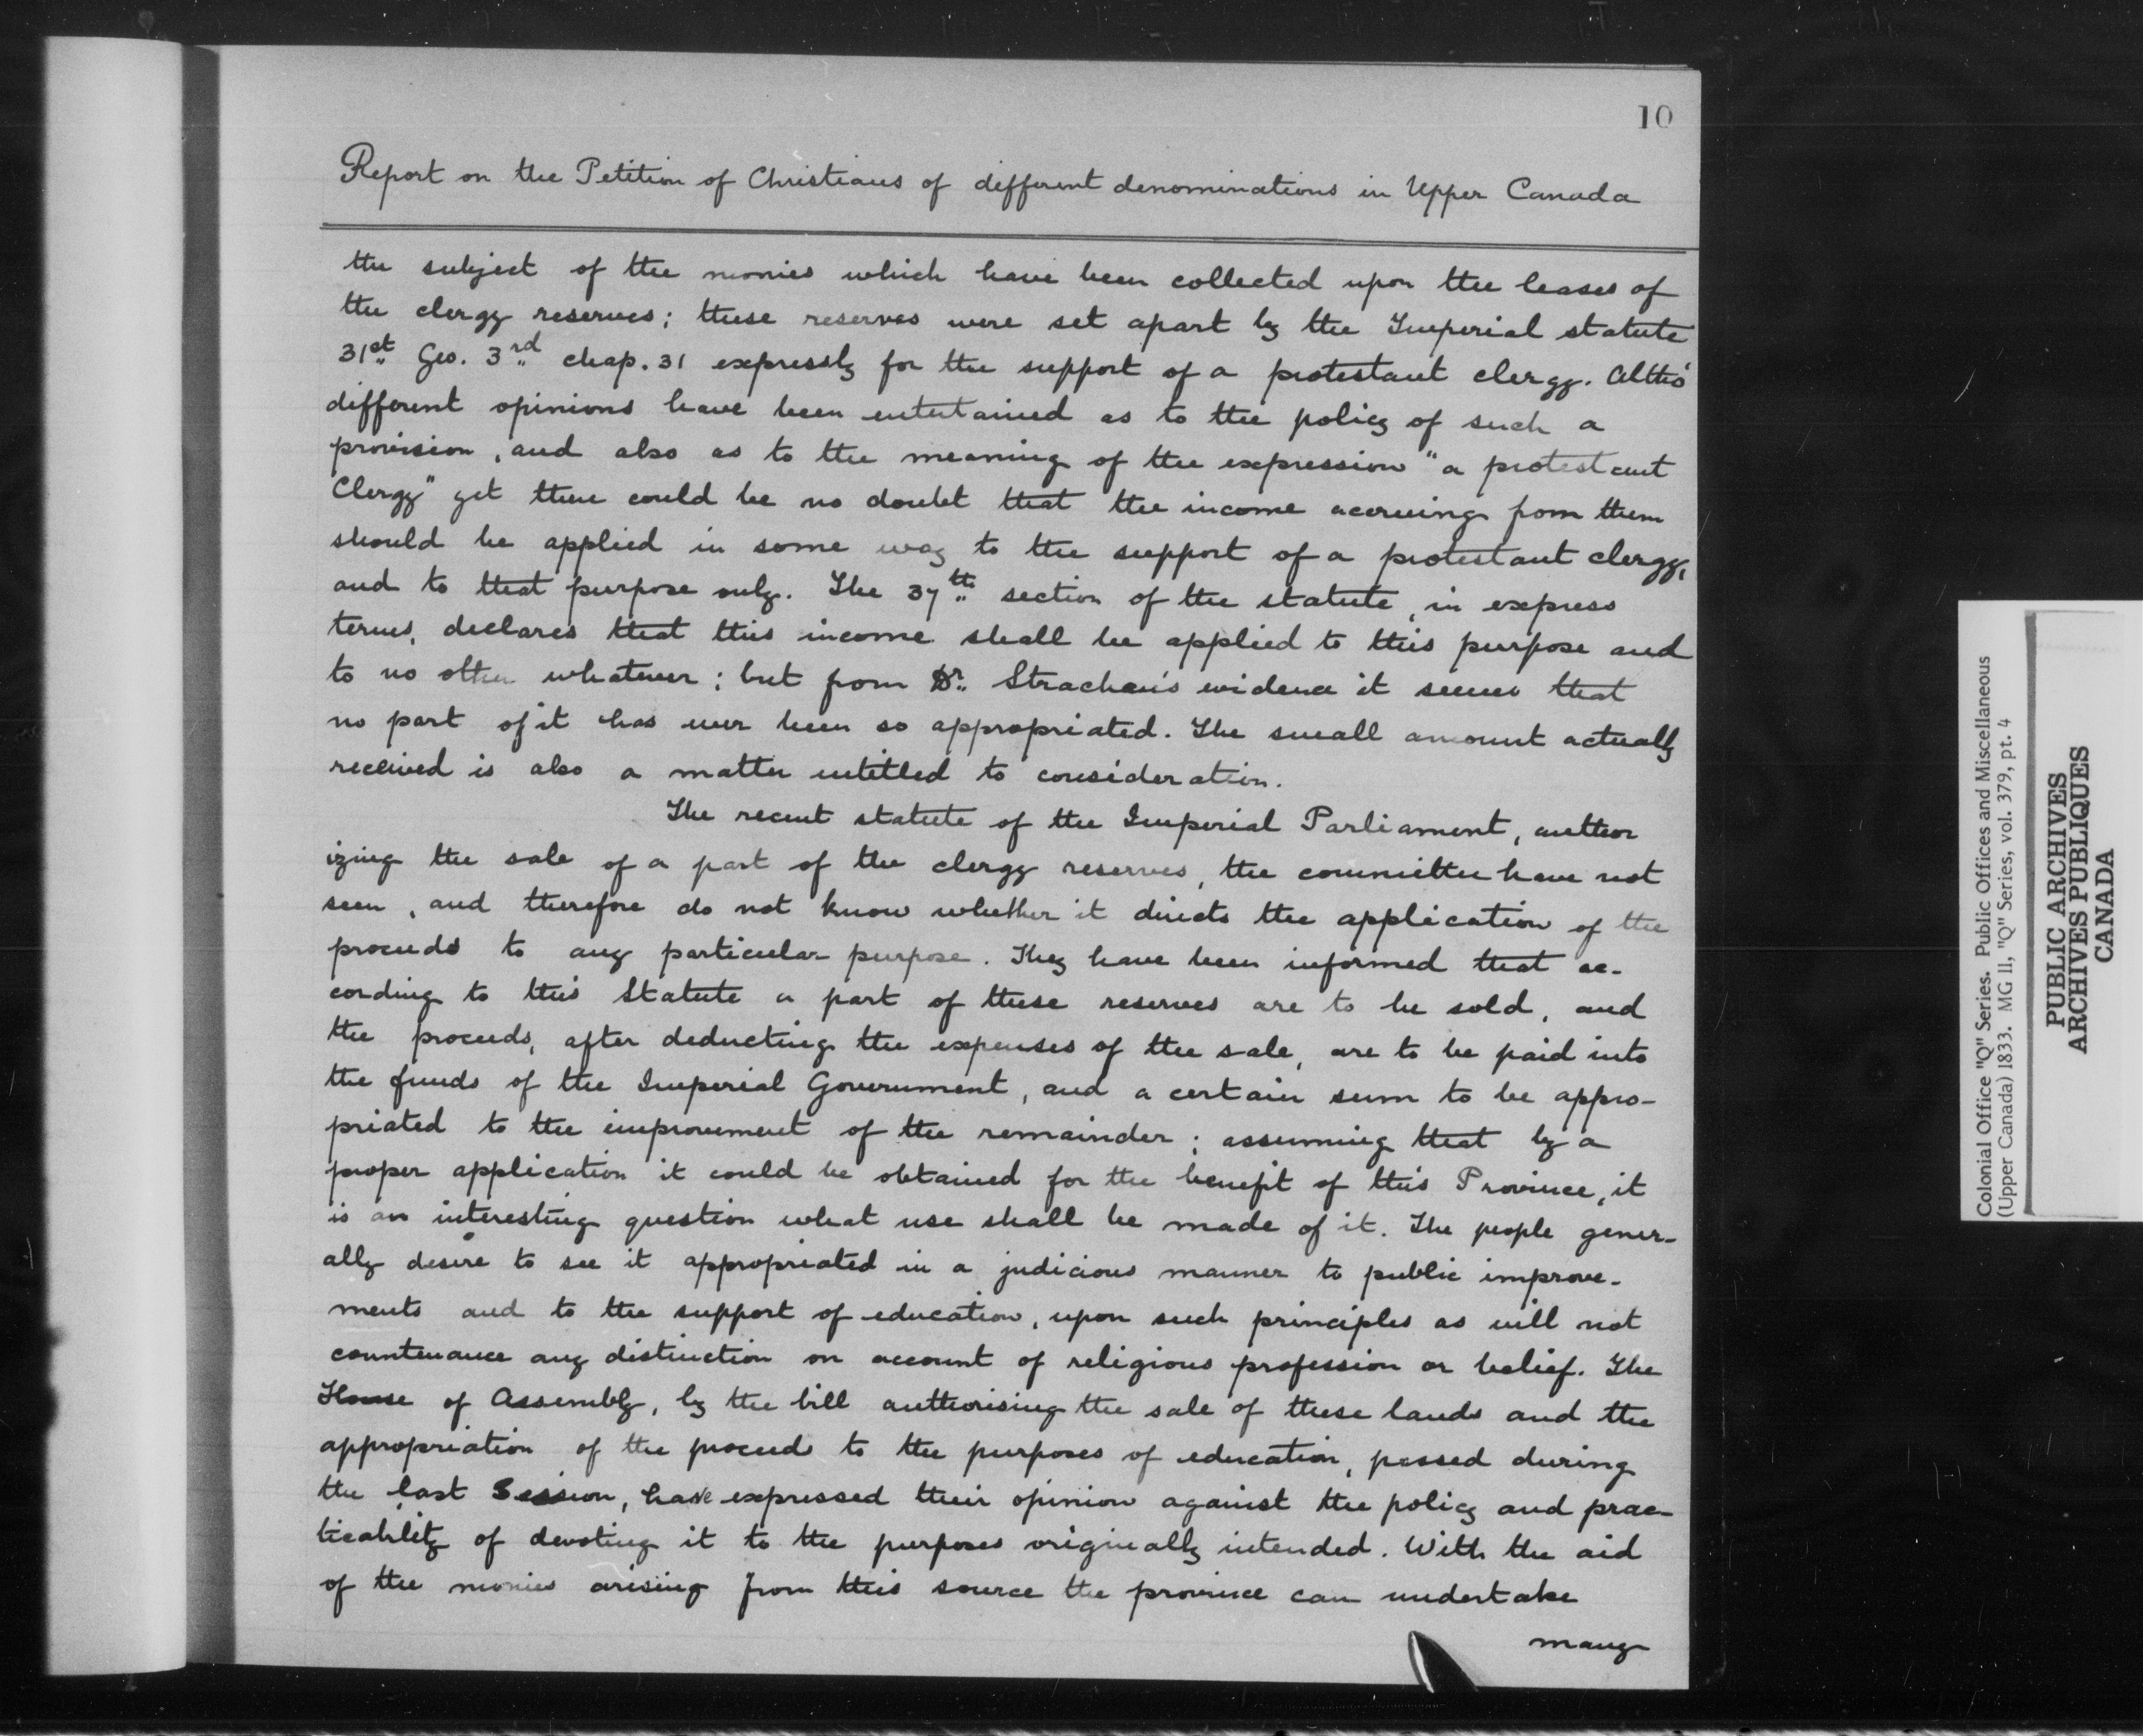 10
Report on the Petition of Christians of different denominations in Upper Canada
the subject of the monies which have been collected upon the leases of
the clergy reserves; these reserves were set apart by the Imperial statute
31st Geo. 3rd chap. 31 expressly for the support of a protestant clergy. Altho'
different opinions have been entertained as to the policy of such a
provision, and also as to the meaning of the expression "a protestant
Clergy" yet there could be no doubt that the income accruing from them
should be applied in some way to the support of a protestant clergy,
and to that purpose only. The 37th section of the statute, in express
terms, declares that this income shall be applied to this purpose and
to no other whatever; but from Dr. Strachan's evidence it seems that
no part of it has ever been so appropriated. The small amount actually
received is also a matter entitled to consideration.
The recent statute of the Imperial Parliament, author
izing the sale of a part of the clergy reserves, the committee have not
seen, and therefore do not know whether it directs the application of the
proceeds to any particular purpose. They have been informed that ac-
cording to this Statute a part of these reserves are to be sold, and
the proceeds, after deducting the expenses of the sale, are to be paid into
the funds of the Imperial Government, and a certain sum to be appro-
priated to the improvement of the remainder; assuming that by a
proper application it could be obtained for the benefit of this Province, it
is an interesting question what use shall be made of it. The people gener-
ally desire to see it appropriated in a judicious manner to public improve-
ments and to the support of education, upon such principles as will not
countenance any distinction on account of religious profession or belief. The
House of Assembly, by the bill authorising the sale of these lands and the
appropriation of the proceeds to the purposes of education, passed during
the last Session, have expressed their opinion against the policy and prac-
ticability of devoting it to the purposes originally intended. With the aid
of the monies arising from this source the province can undertake
many
Colonial Office "Q" Series. Public Offices and Miscellaneous
(Upper Canada) 1833. MG 11, "Q" Series, vol. 379, pt. 4
PUBLIC ARCHIVES
ARCHIVES PUBLIQUES
CANADA